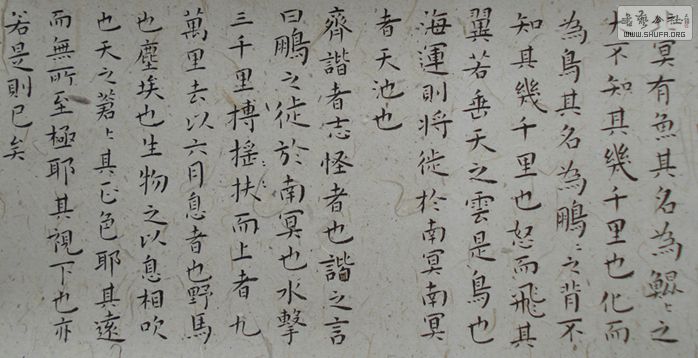 冥有魚其名為鯤〻之
大不知其幾千里也化而
為鳥其名為鵬〻之背不
知其幾千里也怒而飛其
翼若垂天之雲是鳥也
海運則將徙於南冥南冥
者天池也
齊諧者志怪者也諧之言
曰鵬之徙於南冥也水擊
三千里摶搖扶而上者九
萬里去以六月息者也野馬
也塵埃也生物之以息相吹
也天之蒼〻其正色耶其遠
而無所至極耶其視下也亦
若是則已矣
WWW.SHUFA.ORG